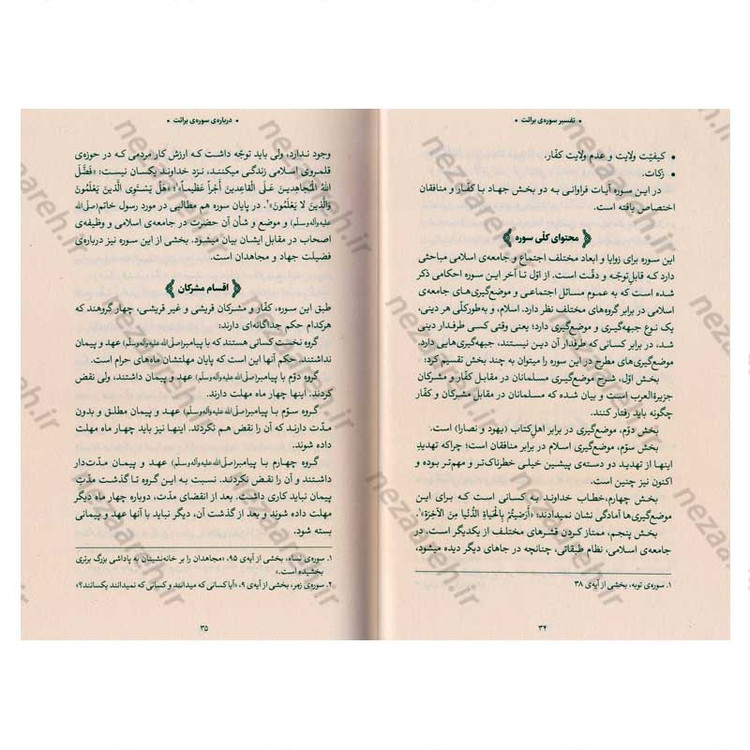 • تفسیر سوره‌ی برائت •
• کیفیّت ولایت و عدم ولایت کفّار.
• زکات.
در این سوره آیات فراوانی به دو بخش جهاد با کفّار و منافقان
اختصاص یافته است.
محتوای کلّی سوره
این سوره برای زوایا و ابعاد مختلف اجتماع و جامعه‌ی اسلامی مباحثی
دارد که قابل‌توجّه و دقّت است. از اوّل تا آخر این سوره احکامی ذکر
شده است که به عموم مسائل اجتماعی و موضع‌گیری‌های جامعه‌ی
اسلامی در برابر گروه‌های مختلف نظر دارد. اسلام، و به‌طورکلّی هر دینی،
یک نوع جبهه‌گیری و موضع‌گیری دارد؛ یعنی وقتی کسی طرفدار دینی
شد، در برابر کسانی که طرفدار آن دین نیستند، جبهه‌گیری‌هایی دارد.
موضع‌گیری‌های مطرح در این سوره را میتوان به چند بخش تقسیم کرد:
بخش اوّل، شرح موضع‌گیری مسلمانان در مقابل کفّار و مشرکان
جزیرةالعرب است و بیان شده که مسلمانان در مقابل مشرکان و کفّار
چگونه باید رفتار کنند.
بخش دوّم، موضع‌گیری در برابر اهل‌کتاب (یهود و نصارا) است.
بخش سوّم، موضع‌گیری اسلام در برابر منافقان است؛ چراکه تهدیدِ
اینها از تهدید دو دسته‌ی پیشین خیلی خطرناک‌تر و مهم‌تر بوده و
اکنون نیز چنین است.
بخش چهارم، خطاب خداوند به کسانی است که برای این
موضع‌گیری‌ها آمادگی نشان نمیدادند: «أَرَضیتُمْ بِالْحَیاةِ الدُّنْیا مِنَ الْآخِرَةِ»¹.
بخش پنجم، ممتاز کردن قشرهای مختلف از یکدیگر است. در
جامعه‌ی اسلامی، نظام طبقاتی، چنانچه در جاهای دیگر دیده میشود،
۱. سوره‌ی توبه، بخشی از آیه‌ی ۳۸
۳۴
• درباره‌ی سوره‌ی برائت •
وجود ندارد، ولی باید توجّه داشت که ارزش کار مردمی که در حوزه‌ی
قلمروی اسلامی زندگی میکنند، نزد خداوند یکسان نیست: «فَضَّلَ
اللهُ الْمُجاهِدینَ عَلَی الْقاعِدینَ أَجْراً عَظیماً»¹؛ «هَلْ یَسْتَوِی الَّذینَ یَعْلَمُونَ
وَالَّذینَ لا یَعْلَمُونَ»². در پایان سوره هم مطالبی در مورد رسول خاتم(صلّی الله
علیه وآله وسلّم) و موضع و شأن آن حضرت در جامعه‌ی اسلامی و وظیفه‌ی
اصحاب در مقابل ایشان بیان میشود. بخشی از این سوره نیز درباره‌ی
فضیلت جهاد و مجاهدان است.
اقسام مشرکان
طبق این سوره، کفّار و مشرکان قریشی و غیر قریشی، چهار گروهند که
هرکدام حکم جداگانه‌ای دارند:
گروه نخست کسانی هستند که با پیامبر(صلّی الله علیه وآله وسلّم) عهد و پیمان
نداشتند، حکم آنها این است که پایان مهلتشان ماه‌های حرام است.
گروه دوّم با پیامبر(صلّی الله علیه وآله وسلّم) عهد و پیمان داشتند، ولی نقض
کردند. اینها چهار ماه مهلت دارند.
گروه سوّم با پیامبر(صلّی الله علیه وآله وسلّم) عهد و پیمان مطلق و بدون
مدّت دارند که آن را نقض هم نکردند. اینها نیز باید چهار ماه مهلت
داده شوند.
گروه چهارم با پیامبر(صلّی الله علیه وآله وسلّم) عهد و پیمان مدّت‌دار
داشتند و آن را نقض نکردند. نسبت به این گروه تا گذشت مدّت
پیمان نباید کاری داشت. بعد از انقضای مدّت، دوباره چهار ماه دیگر
مهلت داده شوند و بعد از گذشت آن، دیگر نباید با آنها عهد و پیمانی
بسته شود.
۱. سوره‌ی نساء، بخشی از آیه‌ی ۹۵، «مجاهدان را بر خانه‌نشینان به پاداشی بزرگ برتری
بخشیده است.»
۲. سوره‌ی زمر، بخشی از آیه‌ی ۹، «آیا کسانی که میدانند و کسانی که نمیدانند یکسانند؟»
۳۵
nezaareh.ir